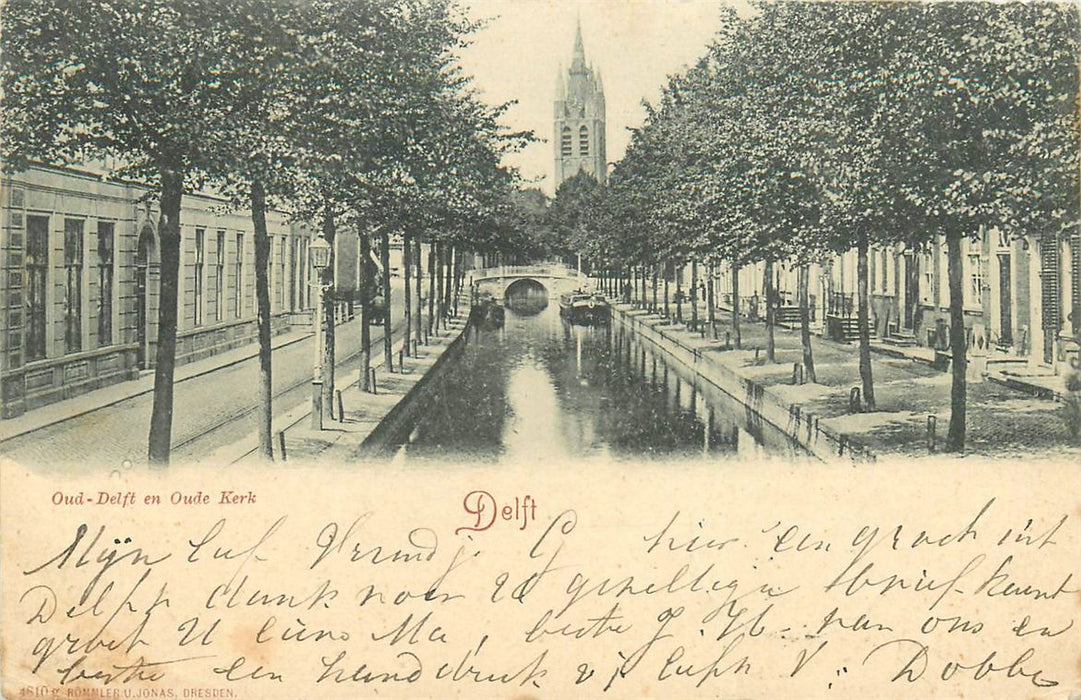 Oud-Delft en Oude Kerk
Delft
Mijn lief Vriendje G hier een gracht uit
Delft dank voor de gezellige briefkaart
groet U eens Ma, beste J. van ons en
beste een handdruk v Dobbe
4610 g RÖMMLER U. JONAS, DRESDEN.